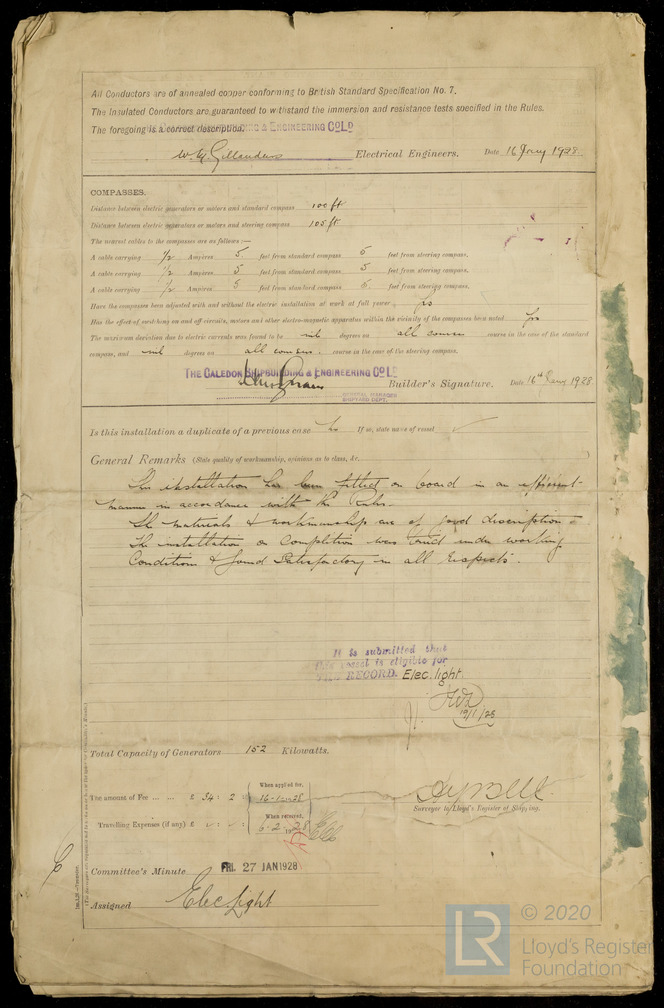 All Conductors are of annealed copper conforming to British Standard Specification No. 7.
The Insulated Conductors are guaranteed to withstand the immersion and resistance tests specified in the Rules.
The foregoing is a correct description.
& ENGINEERING CO LD
Electrical Engineers. Date 16 Jany 1928.
COMPASSES.
Distance between electric generators or motors and standard compass 100 ft
Distance between electric generators or motors and steering compass 105 ft
The nearest cables to the compasses are as follows:—
A cable carrying 1/2 Ampères 5 feet from standard compass 5 feet from steering compass.
A cable carrying 1/2 Ampères 5 feet from standard compass 5 feet from steering compass.
A cable carrying 1/2 Ampères 5 feet from standard compass 5 feet from steering compass.
Have the compasses been adjusted with and without the electric installation at work at full power yes
Has the effect of switching on and off circuits, motors and other electro-magnetic apparatus within the vicinity of the compasses been noted yes
The maximum deviation due to electric currents was found to be nil degrees on all courses course in the case of the standard
compass, and nil degrees on all courses. course in the case of the steering compass.
THE CALEDON SHIPBUILDING & ENGINEERING CO LD
Builder's Signature. Date 16th Jany 1928
GENERAL MANAGER
SHIPYARD DEPT.
Is this installation a duplicate of a previous case no If so, state name of vessel
General Remarks (State quality of workmanship, opinions as to class, &c.
This installation has been fitted on board in an efficient
manner in accordance with the Rules.
The materials & workmanship are of good description.
The installation on completion was tried under working
Conditions & found Satisfactory in all respects.
It is submitted that
this vessel is eligible for
THE RECORD. Elec. light.
19/1/28
Total Capacity of Generators 152 Kilowatts.
The amount of Fee ... ... £ 34 : 2 :
When applied for,
16-1-1928
Travelling Expenses (if any) £
When received,
6.2.1928
Surveyor to Lloyd's Register of Shipping.
Committee's Minute FRI. 27 JAN 1928
Assigned Elec. Light
LR
© 2020
Lloyd's Register
Foundation